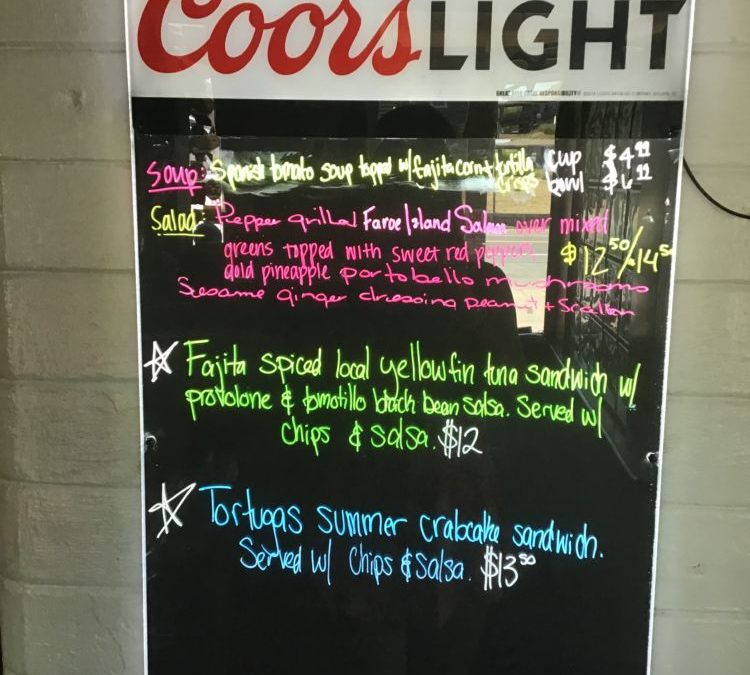 Coors LIGHT
Soup: Spanish tomato soup topped w/ fajita corn + tortilla cup $4.99
crisps bowl $6.99
Salad: Pepper grilled Faroe Island Salmon over mixed
greens topped with sweet red peppers, $12.50/14.50
gold pineapple portobello mushrooms
Sesame ginger dressing peanut + Scallion
☆ Fajita spiced local yellowfin tuna sandwich w/
provolone & tomotillo black bean salsa. Served w/
Chips & Salsa. $12
☆ Tortugas summer crabcake sandwich.
Served w/ Chips & Salsa. $13.50